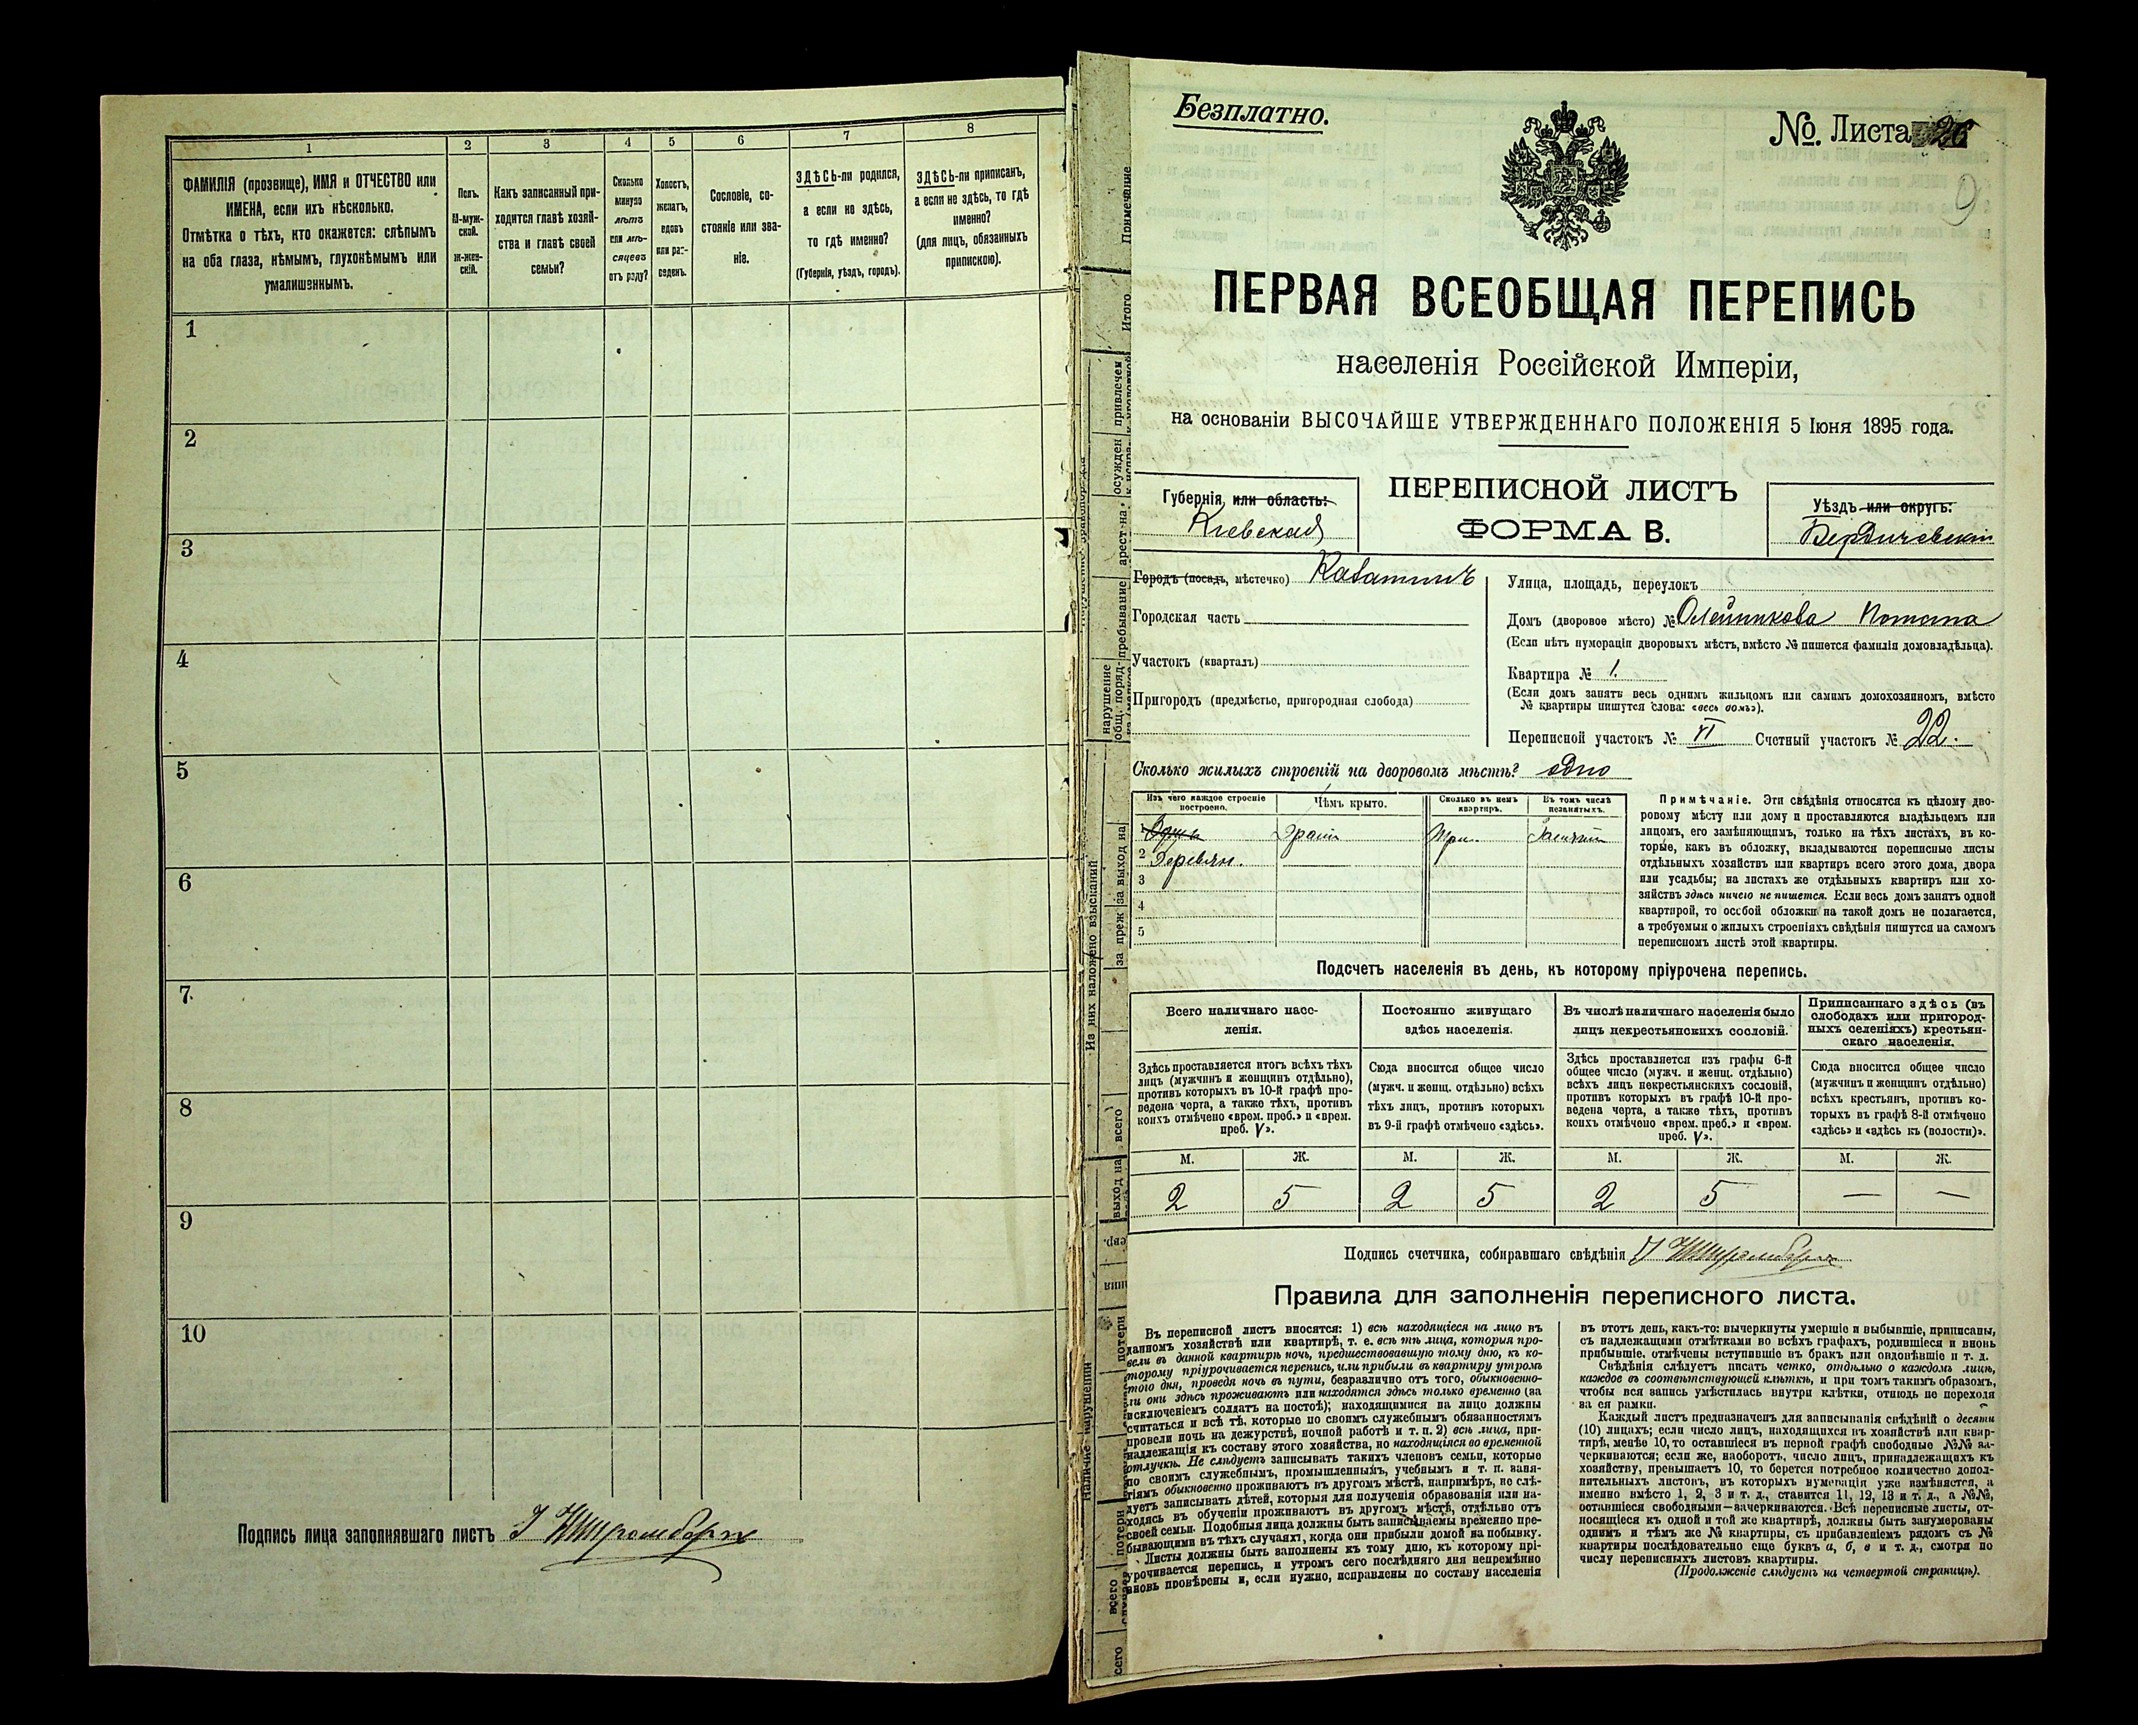 1
2
3
4
5
6
7
8
ФАМИЛІЯ (прозвище), ИМЯ и ОТЧЕСТВО или
ИМЕНА, если ихъ нѣсколько.
Отмѣтка о тѣхъ, кто окажется: слѣпымъ
на оба глаза, нѣмымъ, глухонѣмымъ или
умалишеннымъ.
Полъ.
М-муж-
ской.
Ж-жен-
скій.
Какъ записанный при-
ходится главѣ хозяй-
ства и главѣ своей
семьи?
Сколько
минуло
лѣтъ
или мѣ-
сяцевъ
отъ роду?
Холостъ,
женатъ,
вдовъ
или раз-
веденъ.
Сословіе, со-
стояніе или зва-
ніе.
ЗДѢСЬ-ли родился,
а если не здѣсь,
то гдѣ именно?
(Губернія, уѣздъ, городъ).
ЗДѢСЬ-ли приписанъ,
а если не здѣсь, то гдѣ
именно?
(для лицъ, обязанныхъ
припискою).
1
2
3
4
5
6
7
8
9
10
Подпись лица заполнявшаго листъ
Примечание
Итого
привлечен
осужден
арест на
пребывание
нарушение
общ. поряд-
за выход на
за преж
Из них наложено взысканий
всего
выход на
потери
Наличие нарушений
потери
всего
всего
Безплатно.
№ Листа 26
9
ПЕРВАЯ ВСЕОБЩАЯ ПЕРЕПИСЬ
населенія Россійской Имперіи,
на основаніи ВЫСОЧАЙШЕ УТВЕРЖДЕННАГО ПОЛОЖЕНІЯ 5 Іюня 1895 года.
Губернія, или область:
Кіевская
ПЕРЕПИСНОЙ ЛИСТЪ
ФОРМА В.
Уѣздъ или округъ:
Бердичевскій
Городъ (посадъ, мѣстечко) Казатинъ
Городская часть
Участокъ (кварталъ)
Пригородъ (предмѣстье, пригородная слобода)
Улица, площадь, переулокъ
Домъ (дворовое мѣсто) № Олейникова Потапа
(Если нѣтъ нумераціи дворовыхъ мѣстъ, вмѣсто № пишется фамилія домовладѣльца).
Квартира № 1.
(Если домъ занятъ весь однимъ жильцомъ или самимъ домохозяиномъ, вмѣсто
№ квартиры пишутся слова: «весь домъ»).
Переписной участокъ № VI Счетный участокъ № 22.
Сколько жилыхъ строеній на дворовомъ мѣстѣ? одно
Изъ чего каждое строеніе
построено.
Чѣмъ крыто.
Сколько въ немъ
квартиръ.
Въ томъ числѣ
незанятыхъ.
1
Дран
Три
2 Деревян.
3
4
5
Примѣчаніе. Эти свѣдѣнія относятся къ цѣлому дво-
ровому мѣсту или дому и проставляются владѣльцемъ или
лицомъ, его замѣняющимъ, только на тѣхъ листахъ, въ ко-
торые, какъ въ обложку, вкладываются переписные листы
отдѣльныхъ хозяйствъ или квартиръ всего этого дома, двора
или усадьбы; на листахъ же отдѣльныхъ квартиръ или хо-
зяйствъ здѣсь ничего не пишется. Если весь домъ занятъ одной
квартирой, то особой обложки на такой домъ не полагается,
а требуемыя о жилыхъ строеніяхъ свѣдѣнія пишутся на самомъ
переписномъ листѣ этой квартиры.
Подсчетъ населенія въ день, къ которому пріурочена перепись.
Всего наличнаго насе-
ленія.
Постоянно живущаго
здѣсь населенія.
Въ числѣ наличнаго населенія было
лицъ некрестьянскихъ сословій.
Приписаннаго здѣсь (въ
слободахъ или пригород-
ныхъ селеніяхъ) крестьян-
скаго населенія.
Здѣсь проставляется итогъ всѣхъ тѣхъ
лицъ (мужчинъ и женщинъ отдѣльно),
противъ которыхъ въ 10-й графѣ про-
ведена черта, а также тѣхъ, противъ
коихъ отмѣчено «врем. преб.» и «врем.
преб. V».
Сюда вносится общее число
(мужч. и женщ. отдѣльно) всѣхъ
тѣхъ лицъ, противъ которыхъ
въ 9-й графѣ отмѣчено «здѣсь».
Здѣсь проставляется изъ графы 6-й
общее число (мужч. и женщ. отдѣльно)
всѣхъ лицъ некрестьянскихъ сословій,
противъ которыхъ въ графѣ 10-й про-
ведена черта, а также тѣхъ, противъ
коихъ отмѣчено «врем. преб.» и «врем.
преб. V».
Сюда вносится общее число
(мужчинъ и женщинъ отдѣльно)
всѣхъ крестьянъ, противъ ко-
торыхъ въ графѣ 8-й отмѣчено
«здѣсь» и «здѣсь къ (волости)».
М. Ж. М. Ж. М. Ж. М. Ж.
2 5 2 5 2 5 — —
Подпись счетчика, собиравшаго свѣдѣнія
Правила для заполненія переписного листа.
Въ переписной листъ вносятся: 1) всѣ находящіеся на лицо въ
данномъ хозяйствѣ или квартирѣ, т. е. всѣ тѣ лица, которыя про-
вели въ данной квартирѣ ночь, предшествовавшую тому дню, къ ко-
торому пріурочивается перепись, или прибыли въ квартиру утромъ
того дня, проведя ночь въ пути, безразлично отъ того, обыкновенно-
ли они здѣсь проживаютъ или находятся здѣсь только временно (за
исключеніемъ солдатъ на постоѣ); находящимися на лицо должны
считаться и всѣ тѣ, которые по своимъ служебнымъ обязанностямъ
провели ночь на дежурствѣ, ночной работѣ и т. п. 2) всѣ лица, при-
надлежащія къ составу этого хозяйства, но находящіяся во временной
отлучкѣ. Не слѣдуетъ записывать такихъ членовъ семьи, которые
по своимъ служебнымъ, промышленнымъ, учебнымъ и т. п. заня-
тіямъ обыкновенно проживаютъ въ другомъ мѣстѣ, напримѣръ, не слѣ-
дуетъ записывать дѣтей, которыя для полученія образованія или на-
ходясь въ обученіи проживаютъ въ другомъ мѣстѣ, отдѣльно отъ
своей семьи. Подобныя лица должны быть записываемы временно пре-
бывающими въ тѣхъ случаяхъ, когда они прибыли домой на побывку.
Листы должны быть заполнены къ тому дню, къ которому прі-
урочивается перепись, и утромъ сего послѣдняго дня непремѣнно
вновь провѣрены и, если нужно, исправлены по составу населенія
въ этотъ день, какъ-то: вычеркнуты умершіе и выбывшіе, приписаны,
съ надлежащими отмѣтками во всѣхъ графахъ, родившіеся и вновь
прибывшіе, отмѣчены вступившіе въ бракъ или овдовѣвшіе и т. д.
Свѣдѣнія слѣдуетъ писать четко, отдѣльно о каждомъ лицѣ,
каждое въ соотвѣтствующей клѣткѣ, и при томъ такимъ образомъ,
чтобы вся запись умѣстилась внутри клѣтки, отнюдь не переходя
за ея рамки.
Каждый листъ предназначенъ для записыванія свѣдѣній о десяти
(10) лицахъ; если число лицъ, находящихся въ хозяйствѣ или квар-
тирѣ, менѣе 10, то оставшіеся въ первой графѣ свободные №№ за-
черкиваются; если же, наоборотъ, число лицъ, принадлежащихъ къ
хозяйству, превышаетъ 10, то берется потребное количество допол-
нительныхъ листовъ, въ которыхъ нумерація уже измѣняется, а
именно вмѣсто 1, 2, 3 и т. д., ставится 11, 12, 13 и т. д., а №№,
оставшіеся свободными—зачеркиваются. Всѣ переписные листы, от-
носящіеся къ одной и той же квартирѣ, должны быть занумерованы
однимъ и тѣмъ же № квартиры, съ прибавленіемъ рядомъ съ №
квартиры послѣдовательно еще буквъ а, б, в и т. д., смотря по
числу переписныхъ листовъ квартиры.
(Продолженіе слѣдуетъ на четвертой страницѣ).